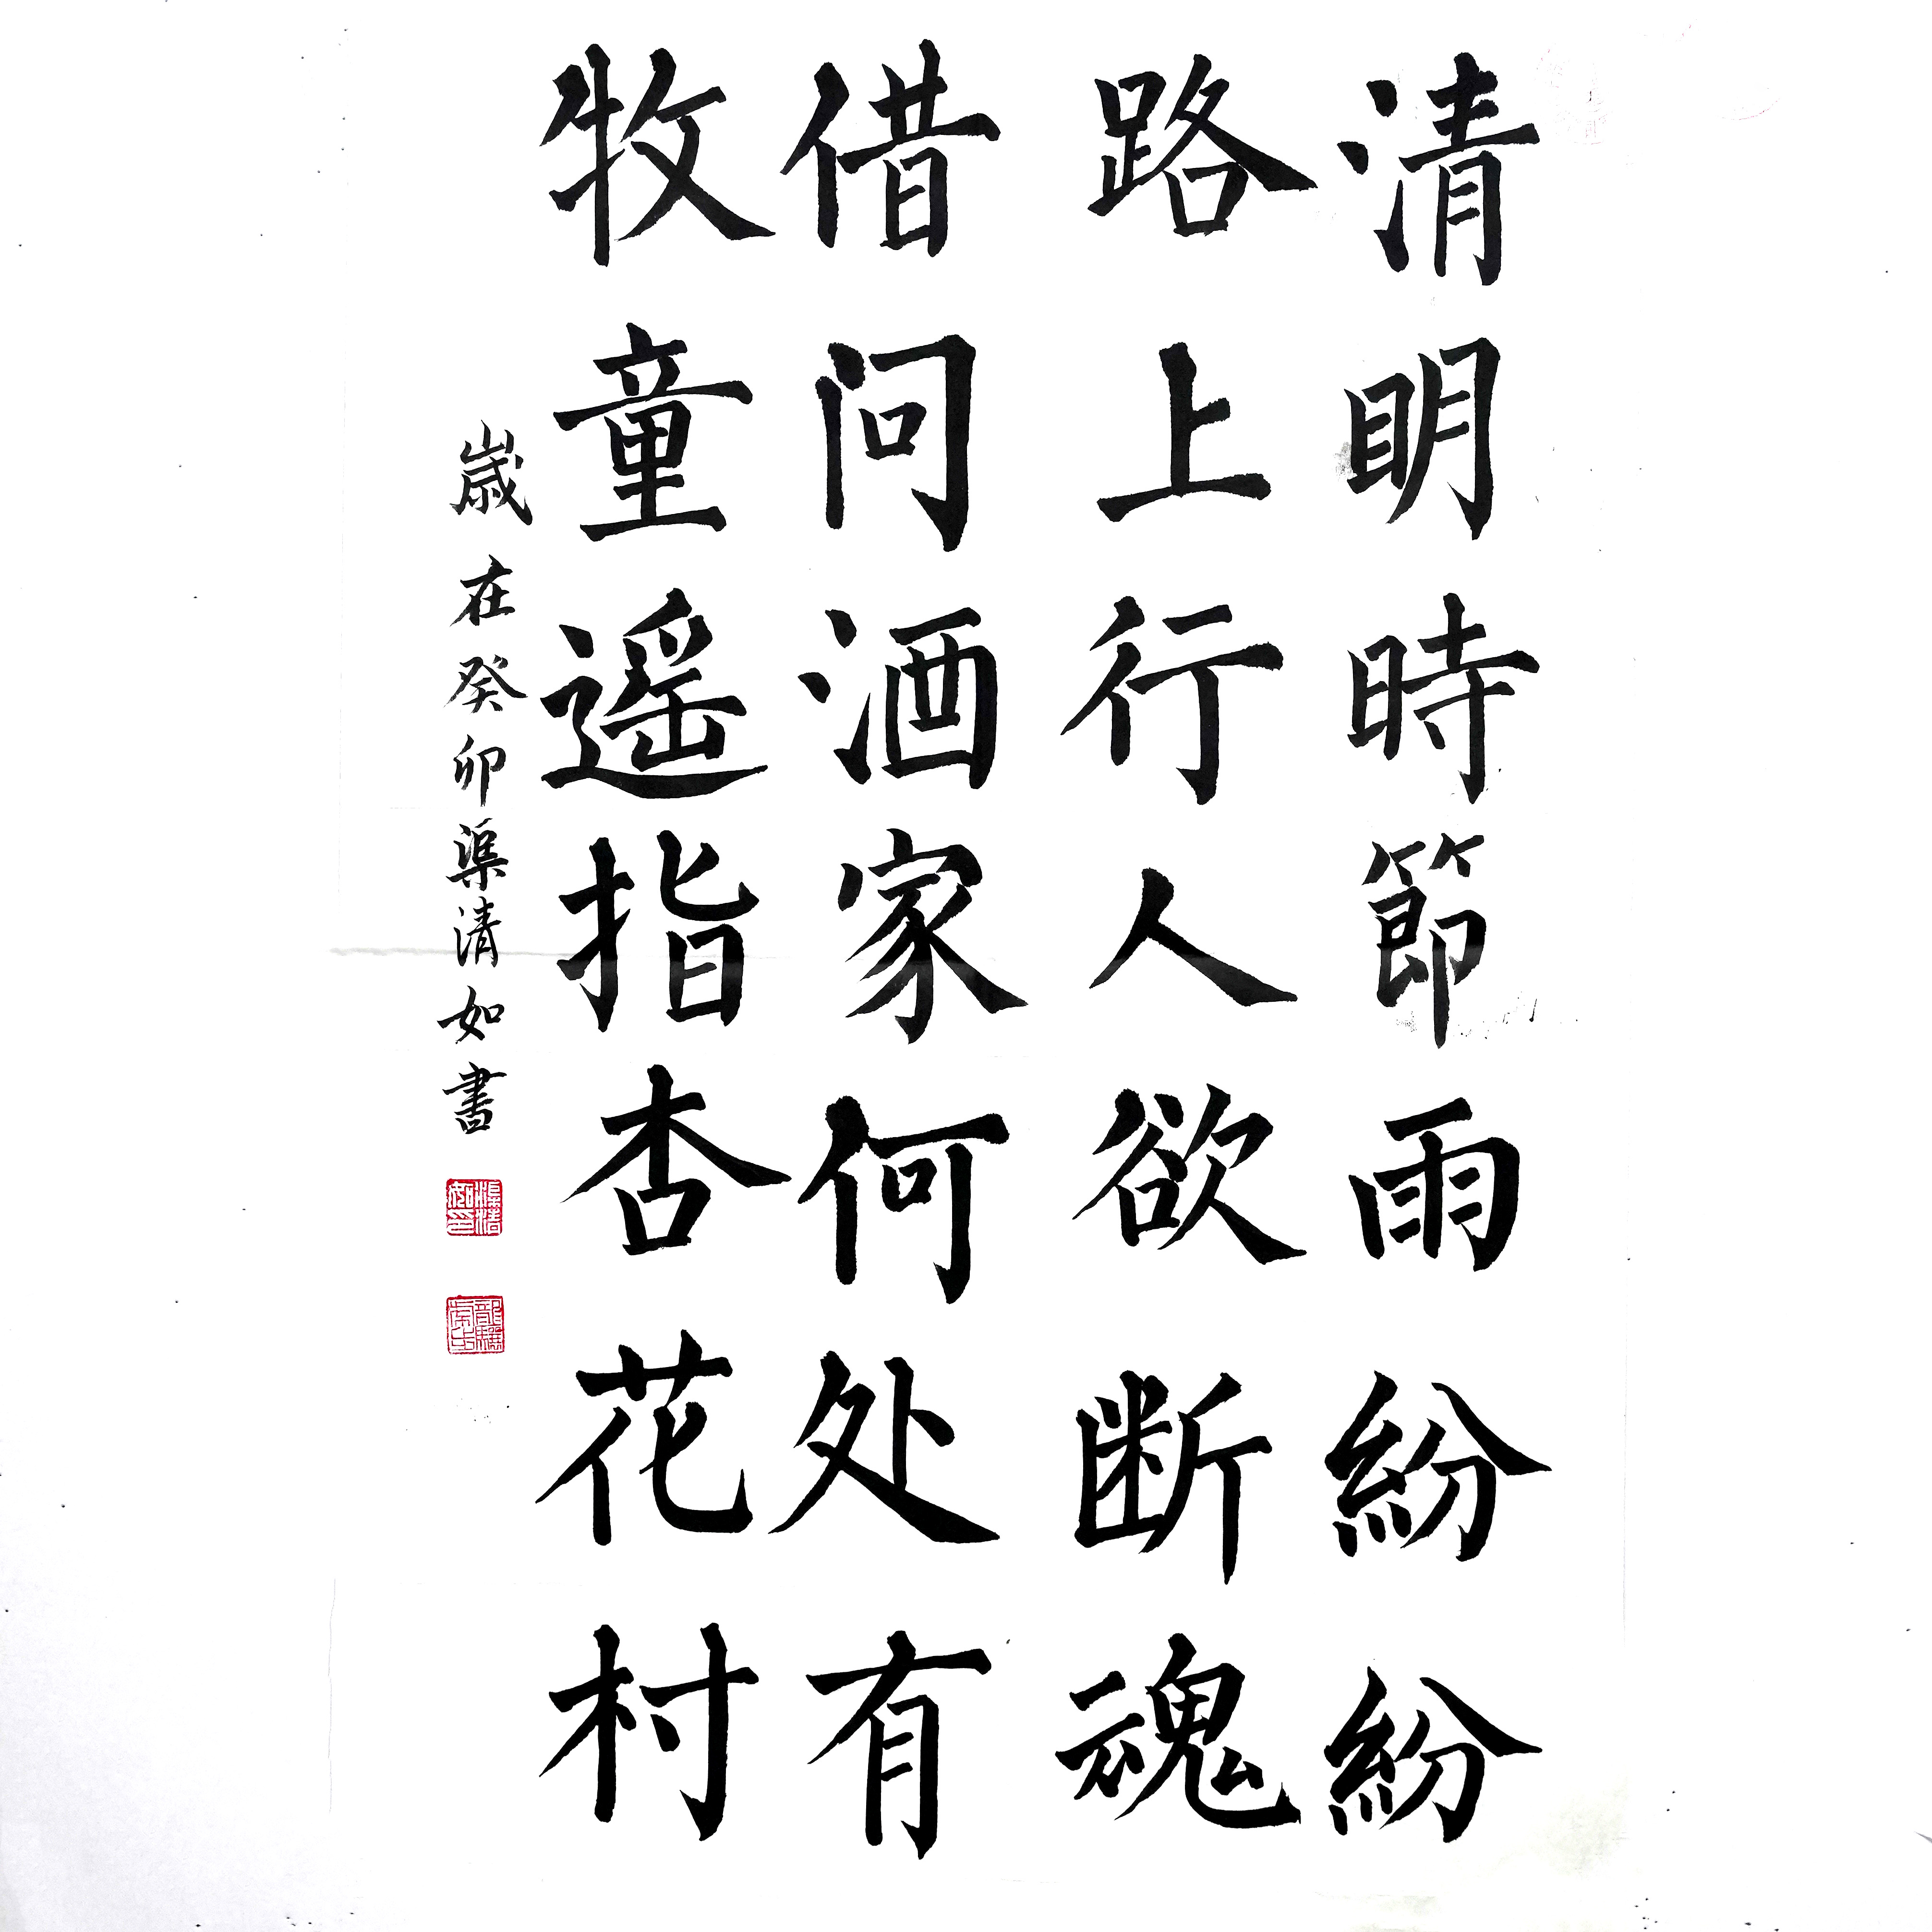 清明時節雨紛紛
路上行人欲断魂
借问酒家何处有
牧童遥指杏花村
歳在癸卯渠清如書
渠清如印